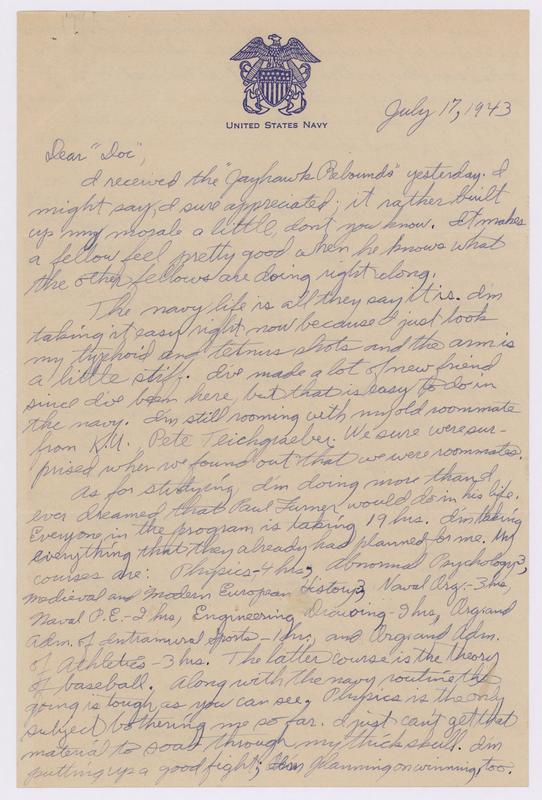 UNITED STATES NAVY
July 17, 1943
Dear "Doc",
I received the "Jayhawk Rebounds" yesterday. I
might say, I sure appreciated; it rather built
up my morale a little, dont you know. It makes
a fellow feel pretty good when he knows what
the other fellows are doing right along.
The navy life is all they say it is. I'm
taking it easy right now because I just took
my typhoid and tetnus shots and the arm is
a little stiff. I've made a lot of new friend
since I've been here, but that is easy to do in
the navy. I'm still rooming with my old roommate
from K.U. Pete Teichgraeber. We sure were sur-
prised when we found out that we were roommates.
As for studying, I'm doing more than I
ever dreamed that Paul Turner would do in his life.
Everyone in the program is taking 19 hrs. I'm taking
everything that they already had planned for me. My
courses are: Physics-4 hrs, Abnormal Psychology 3,
Medieval and Modern European History 3, Naval Org.-3 hrs,
Naval P.E.-2 hrs, Engineering Drawing-2 hrs, Org. and
Adm. of Intramural Sports-1 hr, and Org. and Adm.
of Athletics-3 hrs. The latter course is the theory
of baseball. Along with the navy routine the
going is tough, as you can see. Physics is the only
subject bothering me so far. I just can't get that
material to soak through my thick skull. I'm
putting up a good fight; planning on winning, too.